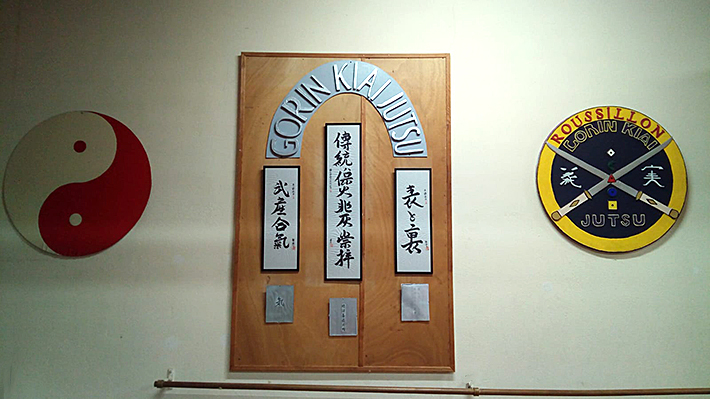 GORIN KIAI JUTSU
武産合氣
傳統保火非灰崇拝
表と裏
ROUSSILLON
GORIN KIAI
実
JUTSU